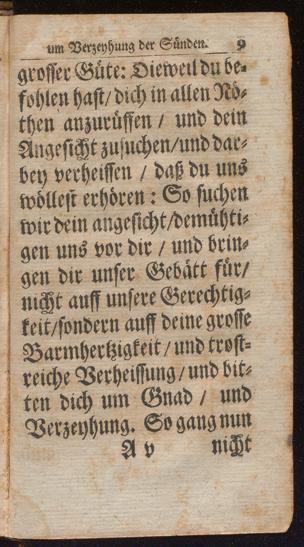 um Verzeyhung der Sünden. 9
grosser Güte: Dieweil du be-
fohlen hast/ dich in allen Nö-
then anzurüffen / und dein
Angesicht zusuchen/und dar-
bey verheissen / daß du uns
wöllest erhören : So suchen
wir dein angesicht/demühti-
gen uns vor dir / und brin-
gen dir unser Gebätt für/
nicht auff unsere Gerechtig-
keit/sondern auff deine grosse
Barmhertzigkeit / und trost-
reiche Verheissung / und bit-
ten dich um Gnad / und
Verzeyhung. So gang nun
A v nicht